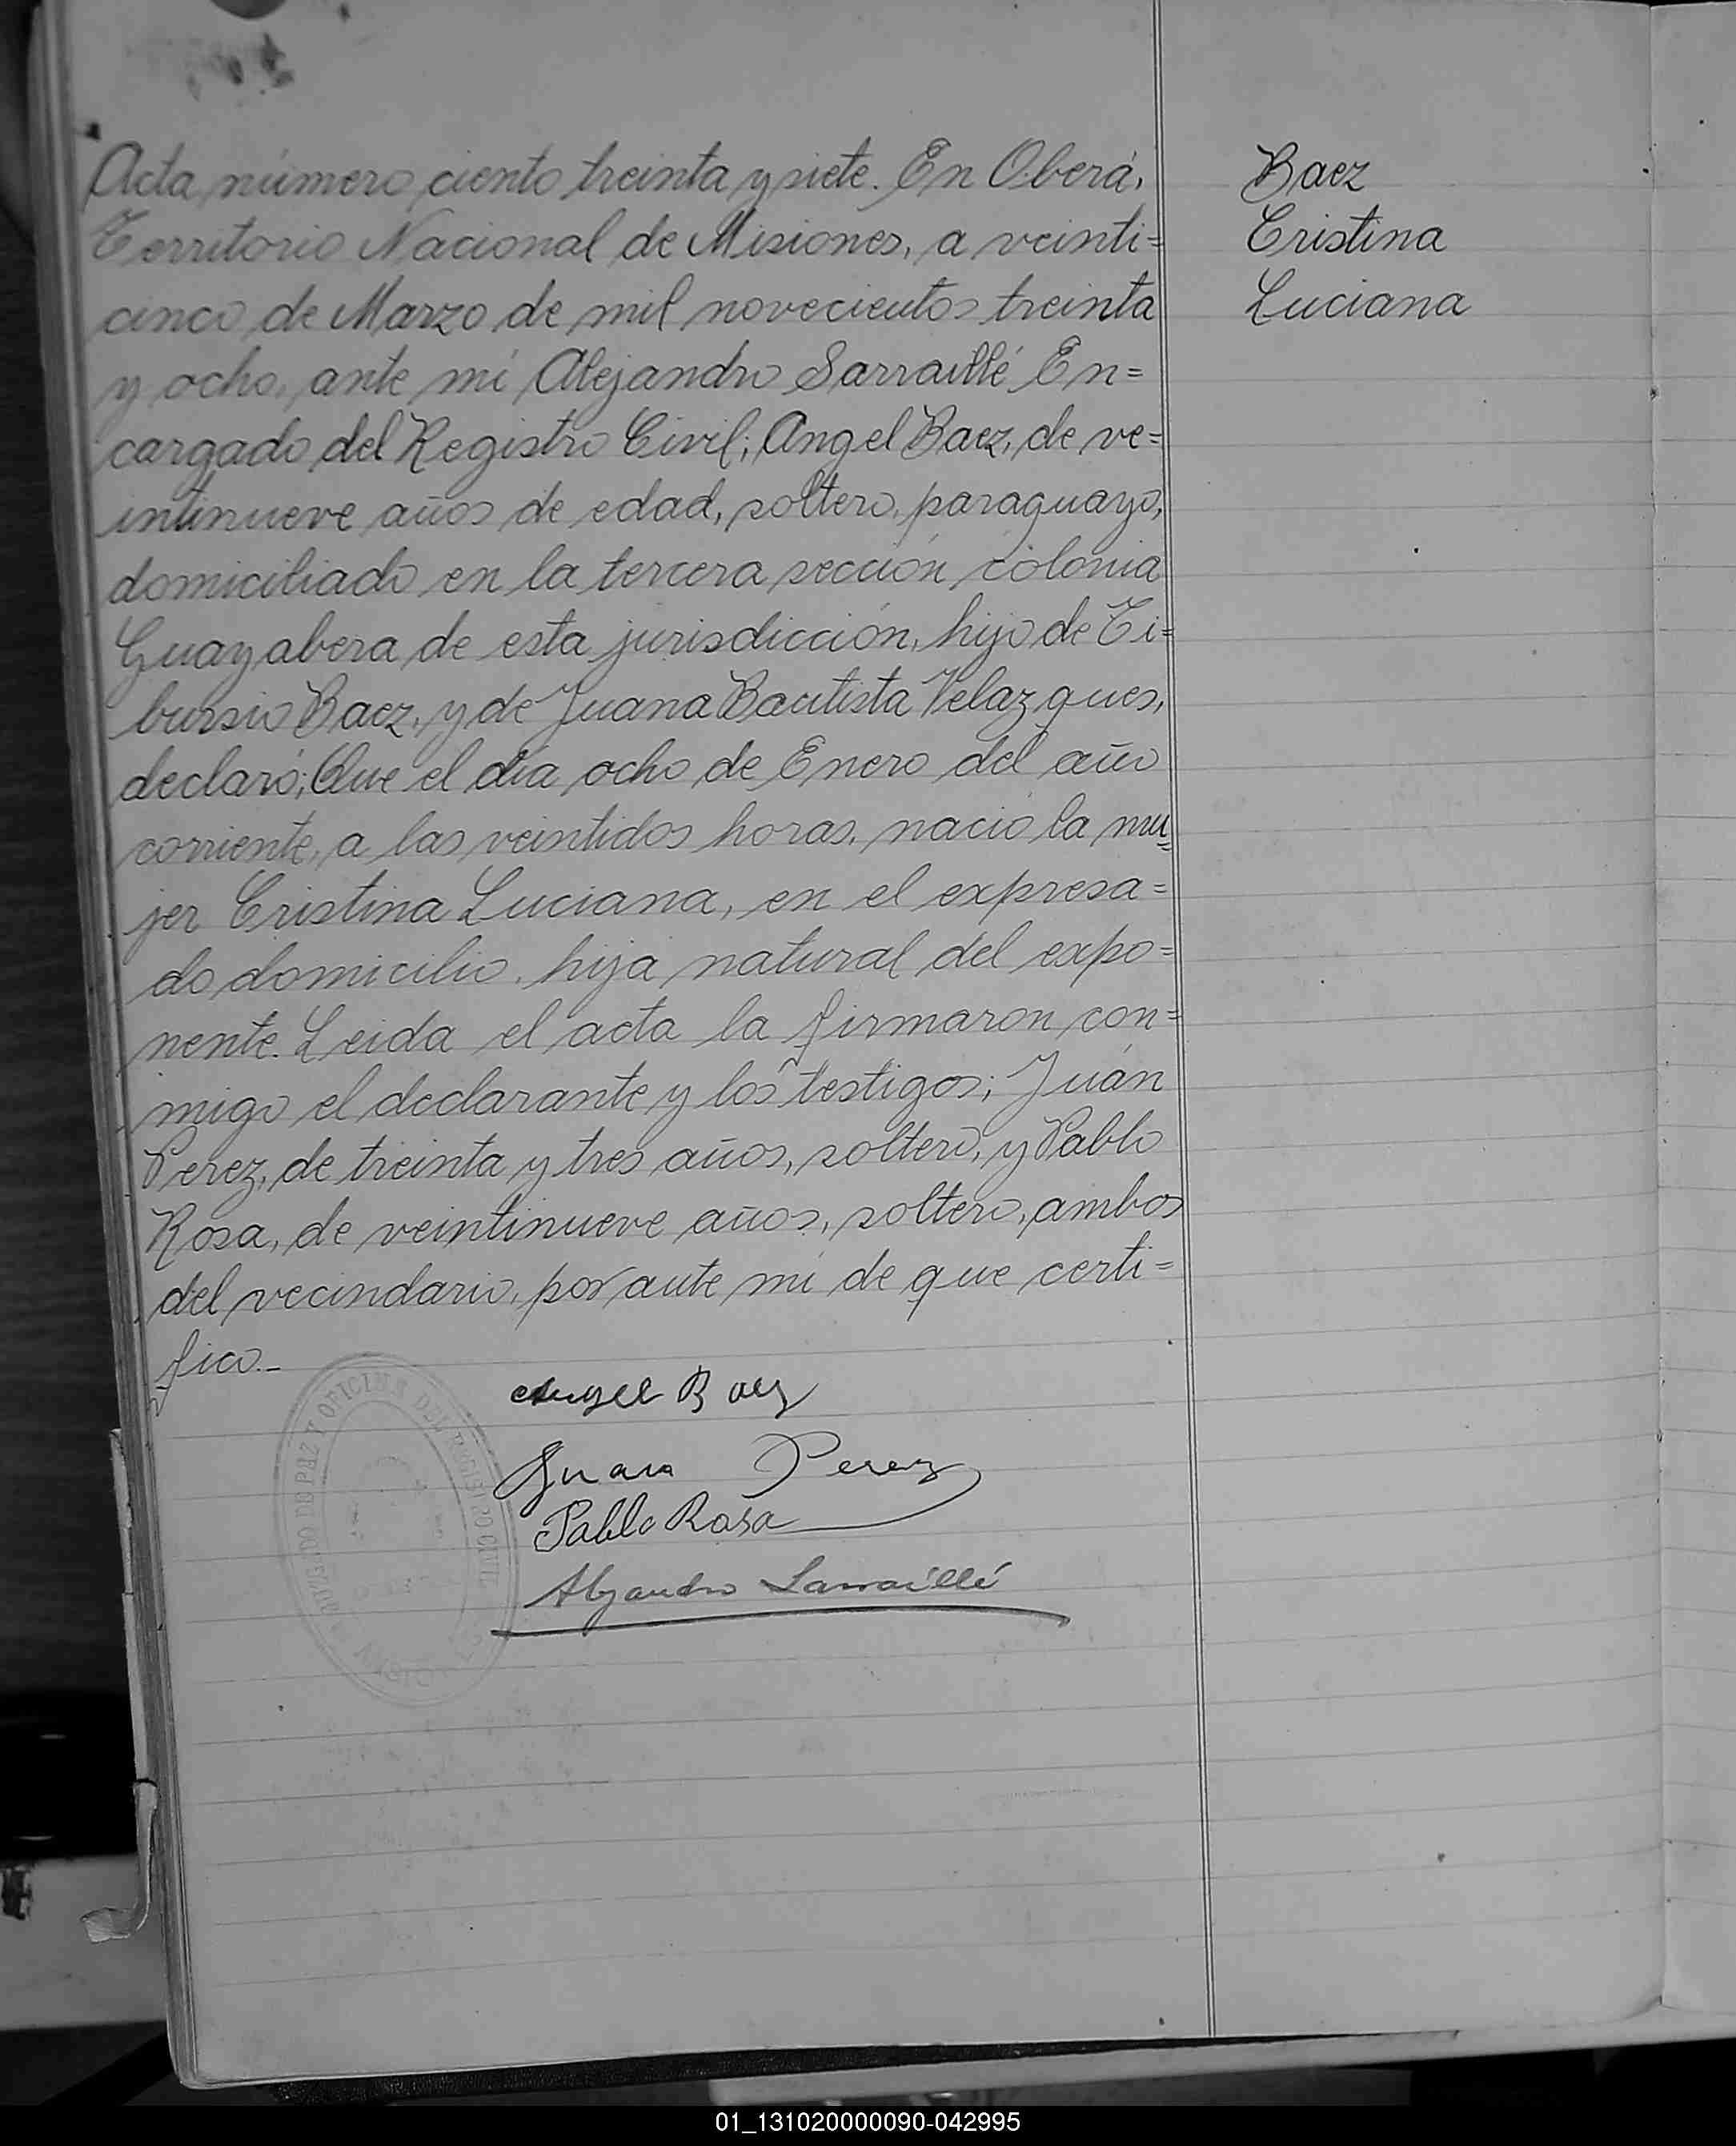 Acta número ciento treinta y siete. En Oberá,
Territorio Nacional de Misiones, a veinti=
cinco de Marzo de mil novecientos treinta
y ocho, ante mí Alejandro Sarraillé En=
cargado del Registro Civil; Angel Baez, de ve=
intinueve años de edad, soltero, paraguayo,
domiciliado en la tercera sección colonia
Guayabera de esta jurisdicción, hijo de Ti=
bursio Baez, y de Juana Bautista Velazques,
declaró; Que el día ocho de Enero del año
corriente, a las veintidos horas, nació la mu=
jer Cristina Luciana, en el expresa=
do domicilio, hija natural del expo=
nente. Leida el acta la firmaron con=
migo el declarante y los testigos; Juán
Perez, de treinta y tres años, soltero, y Pablo
Rosa, de veintinueve años, soltero, ambos
del vecindario, por ante mí de que certi=
fico.-
Baez
Cristina
Luciana
Angel Baez
Juan Perez
Pablo Rosa
Alejandro Sarraillé
JUZGADO DE PAZ Y OFICINA DEL REGISTRO CIVIL
01_131020000090-042995